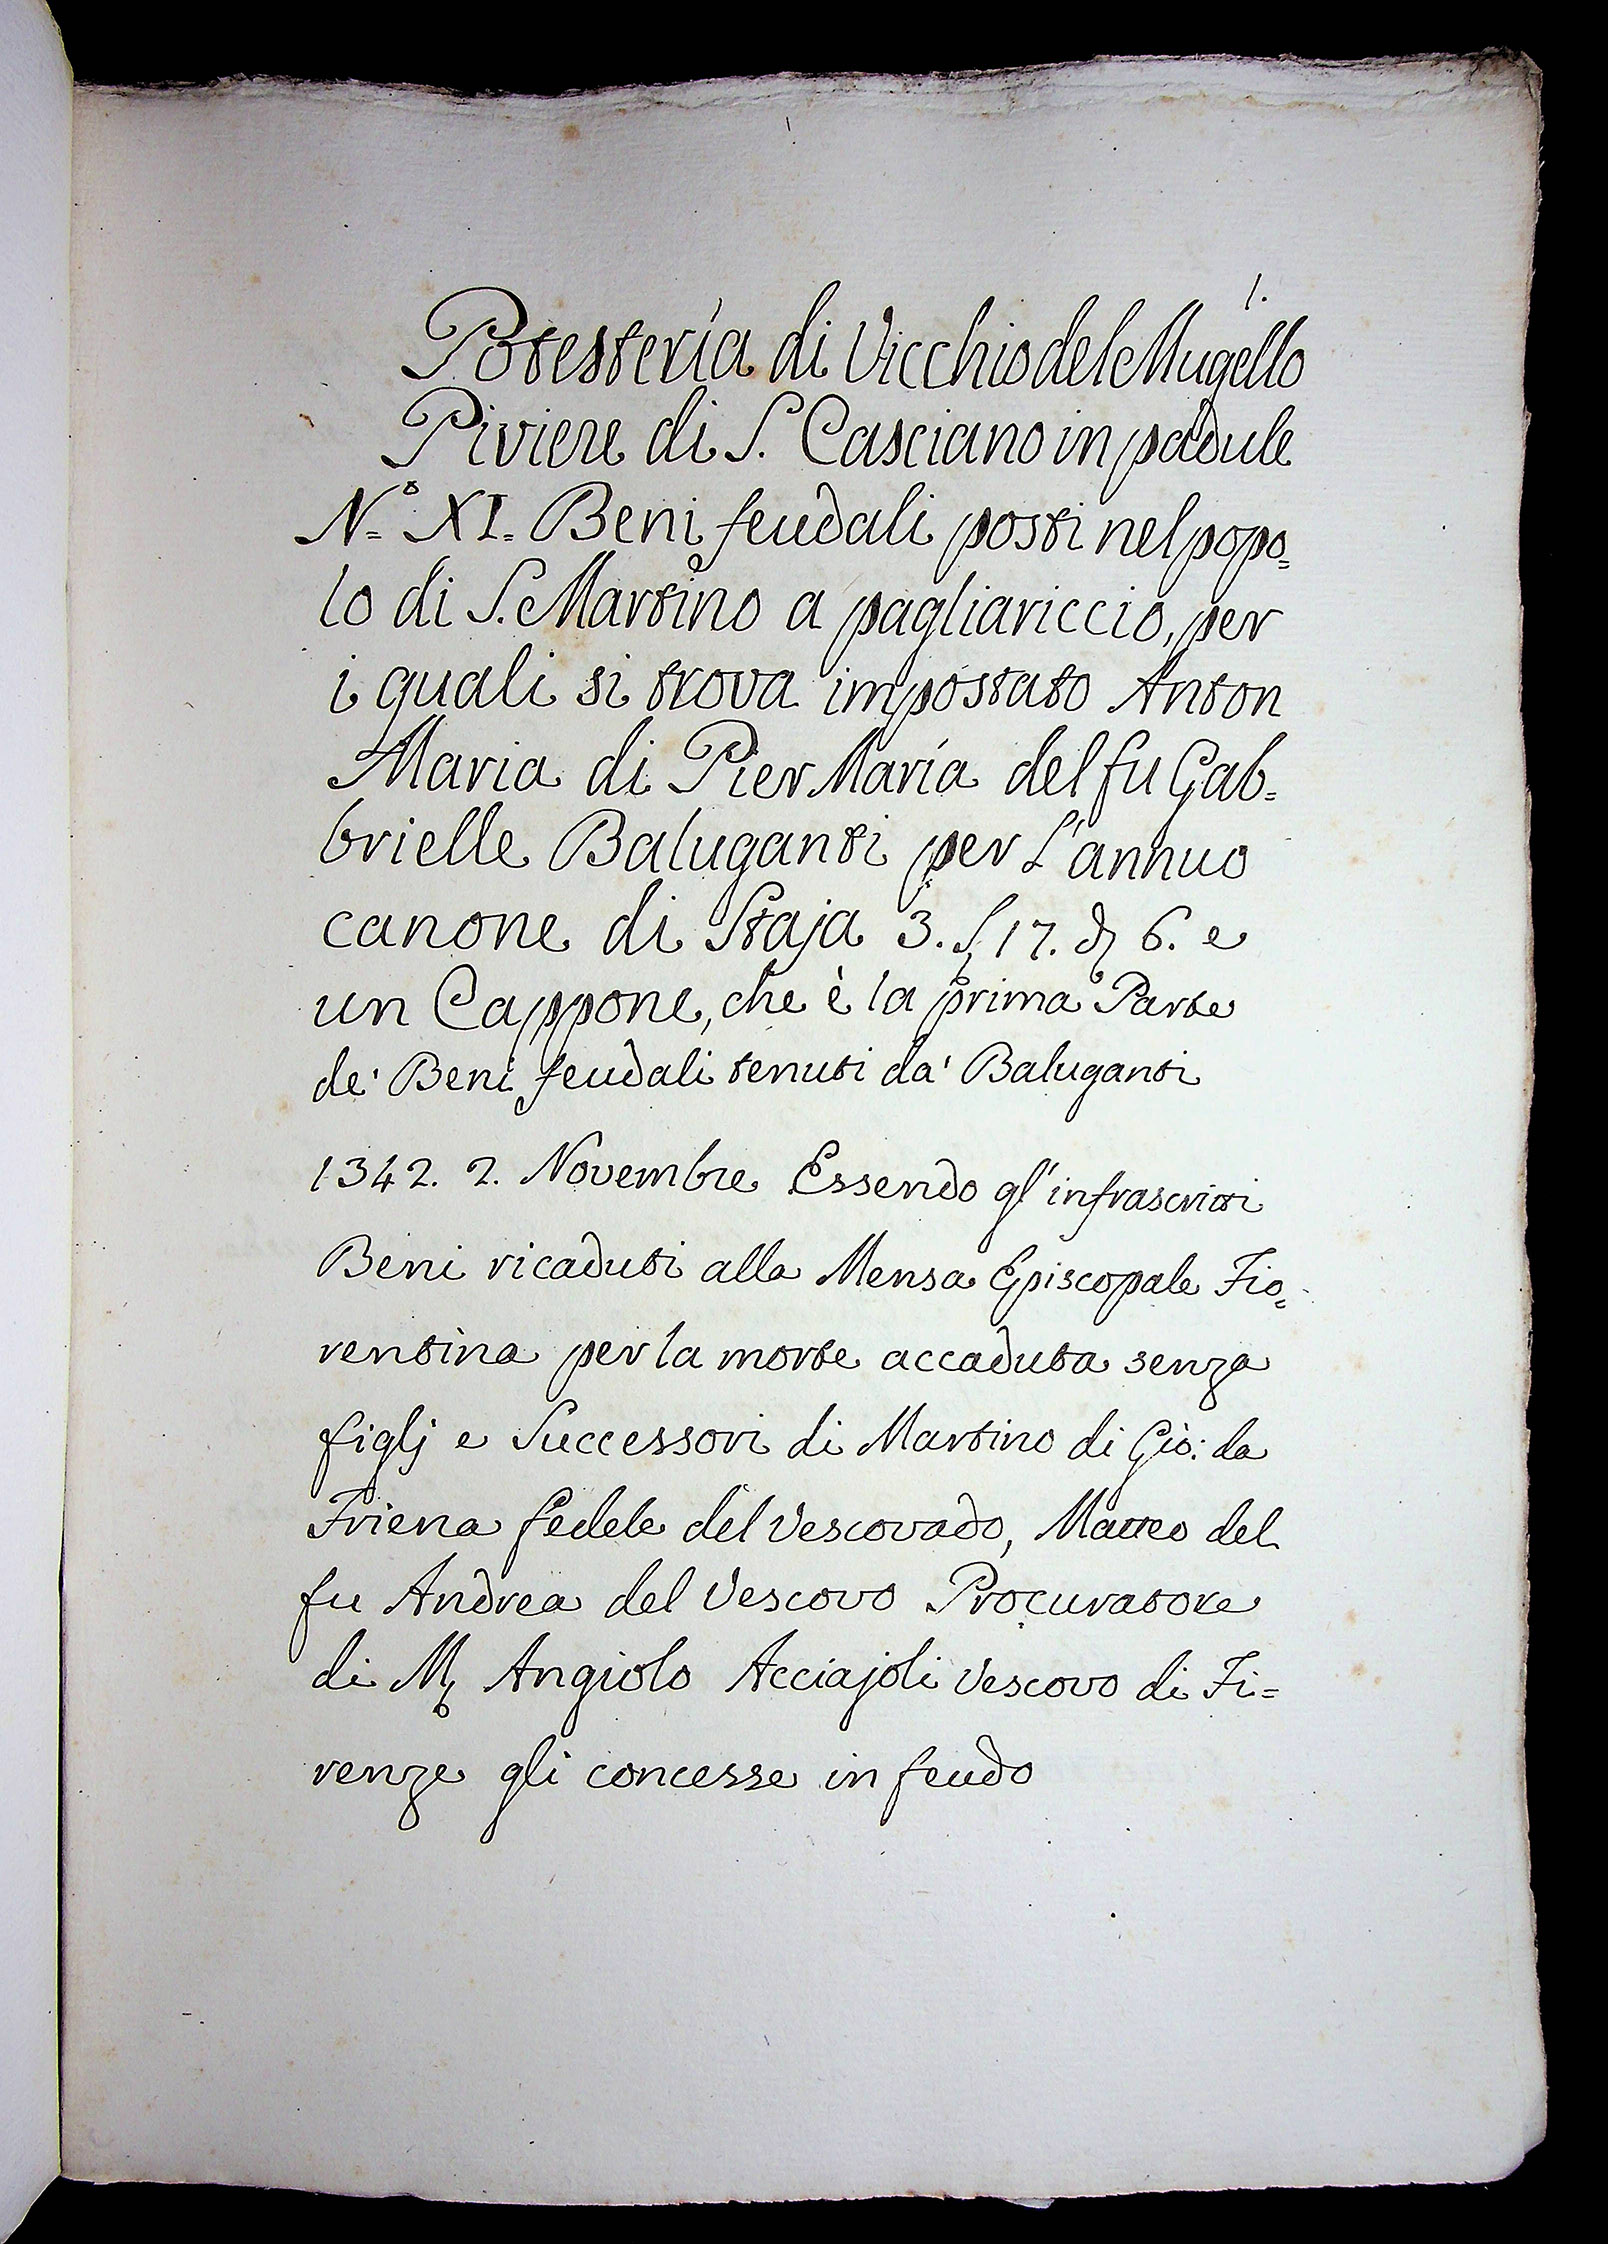 1.
Potesteria di Vicchio del Mugello
Piviere di S. Casciano in padule
N.º XI. Beni feudali posti nel popo=
lo di S. Martino a pagliariccio, per
i quali si trova impostato Anton
Maria di Pier Maria del fu Gab=
brielle Baluganti per L'annuo
canone di Staja 3. S 17. d 6. e
un Cappone, che è la prima Parte
de' Beni feudali tenuti da' Baluganti
1342. 2. Novembre Essendo gl'infrascritti
Beni ricaduti alla Mensa Episcopale Fio=
rentina per la morte accaduta senza
figlj e Successori di Martino di Gio: da
Friena fedele del Vescovado, Matteo del
fu Andrea del Vescovo Procuratore
di M. Angiolo Acciajoli Vescovo di Fi=
renze gli concesse in feudo